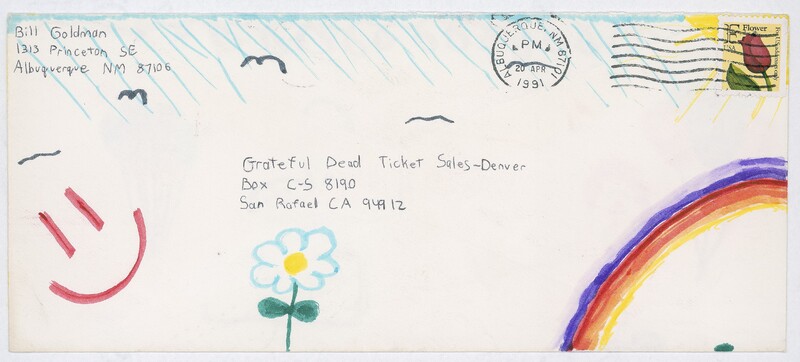 Bill Goldman
1313 Princeton SE
Albuquerque NM 87106
ALBUQUERQUE, NM 87101
PM
20 APR
1991
Flower
USA
Grateful Dead Ticket Sales-Denver
Box C-S 8190
San Rafael CA 94912